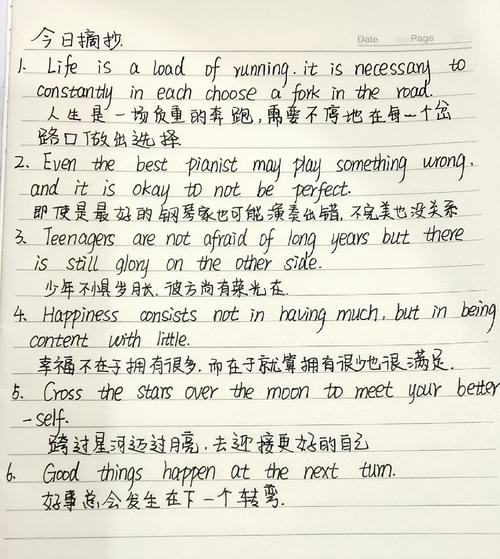 今日摘抄.
Date Page
1. Life is a load of running. it is necessary to
constantly in each choose a fork in the road.
人生是一场负重的奔跑,需要不停地在每一个岔
路口做出选择
2. Even the best pianist may play something wrong.
and it is okay to not be perfect.
即使是最好的钢琴家也可能演奏出错,不完美也没关系
3. Teenagers are not afraid of long years but there
is still glory on the other side.
少年不惧岁月长,彼方尚有荣光在.
4. Happiness consists not in having much, but in being
content with little.
幸福不在于拥有很多,而在于就算拥有很少也很满足.
5. Cross the stars over the moon to meet your better
-self.
跨过星河迈过月亮,去迎接更好的自己
6. Good things happen at the next turn.
好事总会发生在下一个转弯.